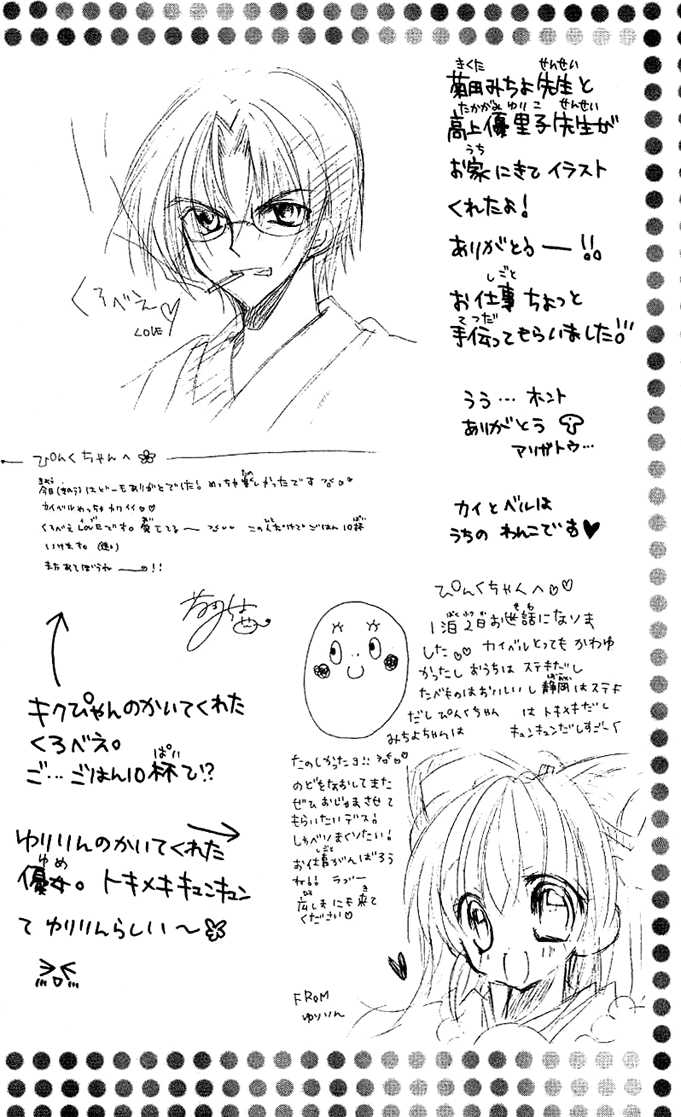 菊田みちよ先生と
きくた せんせい
高上優里子先生が
たかがみ ゆりこ せんせい
お家にきて イラスト
うち
くれたよ!
ありがとうー!!
お仕事ちょっと
しごと
手伝ってもらいました!!
てつだ
うう… ホント
ありがとう
アリガトウ…
カイとベルは
うちの わんこです♥
くろべえ♡
LOVE
ぴんくちゃんへ
今日(きのう)はどーもありがとでした! めっちゃ楽しかったです
カイベルめっちゃカワイイ♡♡
くろべえLOVEです。愛してるー このくだけでごはん10杯
いけます。
またあそぼうねー!!
キクぴゃんのかいてくれた
くろべえ。
ご…ごはん10杯で!?
ぱい
ゆりりんのかいてくれた
優女。トキメキキュンキュン
ゆめ
て ゆりりんらしい〜
ぴんくちゃんへ♡♡
1泊2日お世話になりま
した♡♡ カイベルとってもかわゆ
かったし おうちは ステキだし
たべものはおいしいし 静岡はステキ
だし ぴんくちゃん はトキメキだし
みちよちゃんは キュンキュンだしすごし
たのしかったヨ!!
のどをなおしてまた
ぜひおじゃまさせて
もらいたいデス!
しゃべりまくりたい!
お仕事がんばろう
しごと
ね!! ラブー
広しまにも来て
ください♡
FROM
ゆりりん